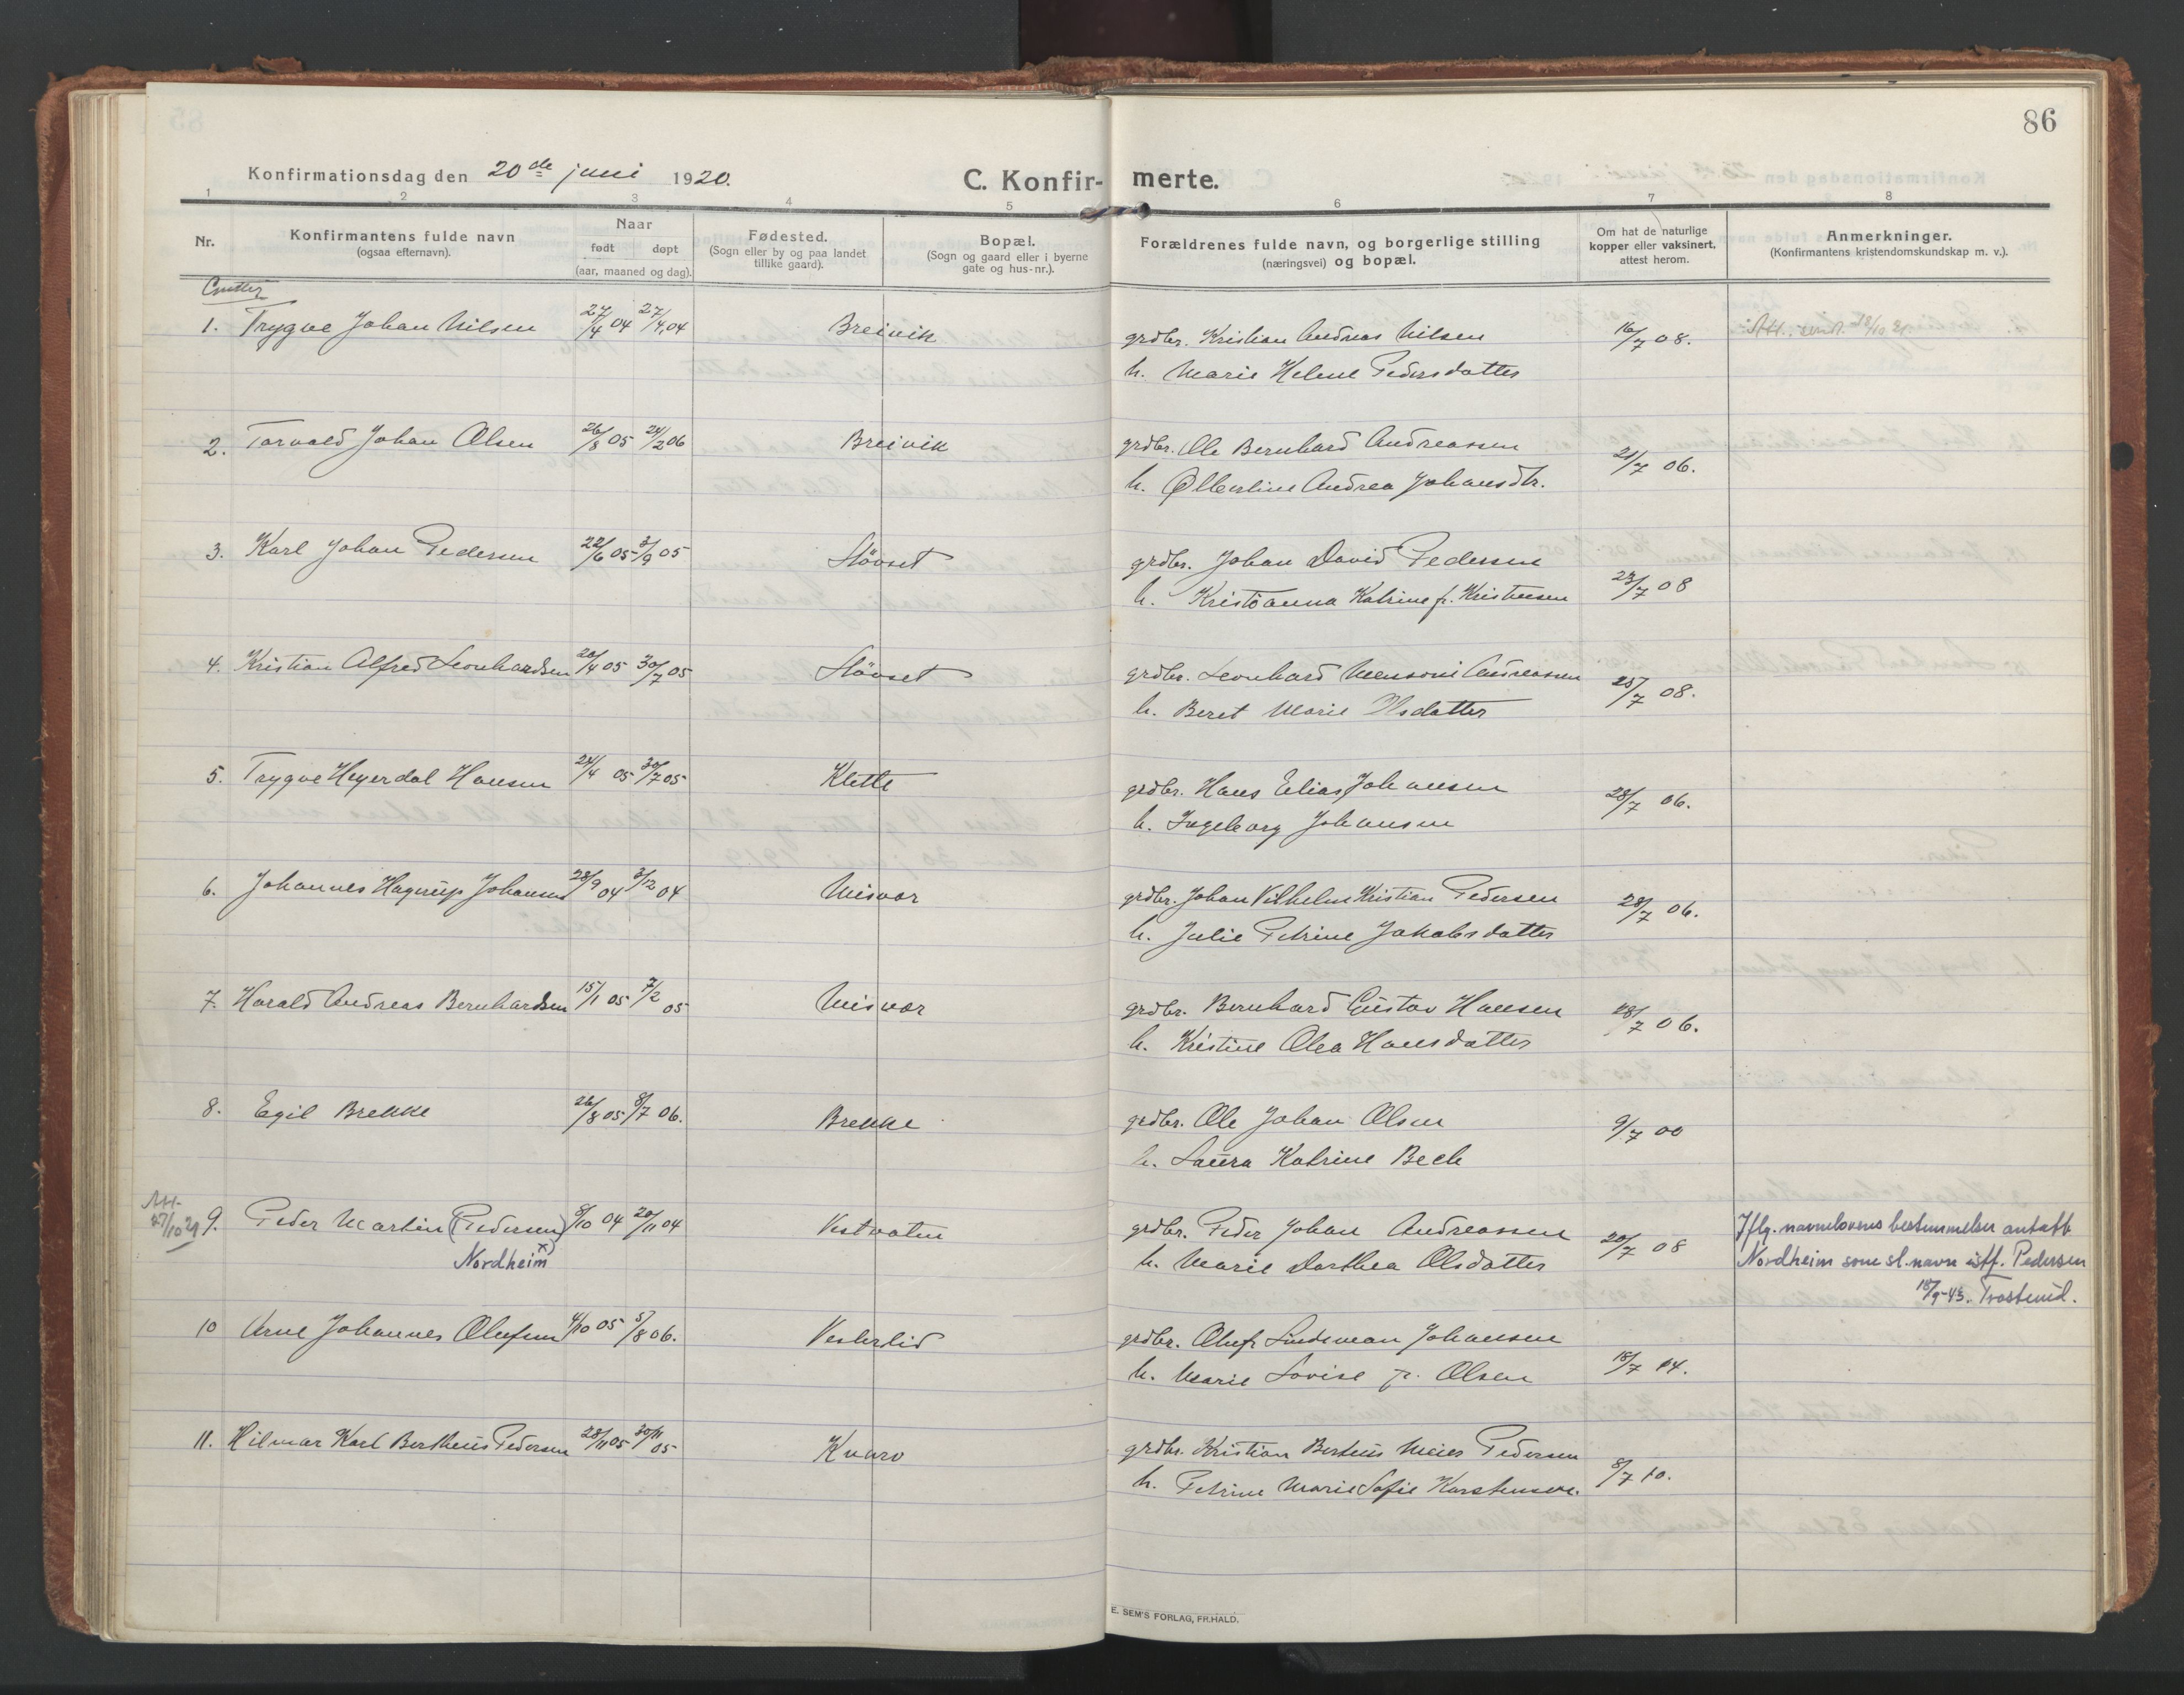 86
Konfirmationsdag den 20de juni 1920.
C. Konfirmerte.
1 2 3 4 5 6 7 8
Nr.
Konfirmantens fulde navn
(ogsaa efternavn).
Naar
født døpt
(aar, maaned og dag).
Fødested.
(Sogn eller by og paa landet
tillike gaard).
Bopæl.
(Sogn og gaard eller i byerne
gate og hus-nr.).
Forældrenes fulde navn, og borgerlige stilling
(næringsvei) og bopæl.
Om hat de naturlige
kopper eller vaksinert,
attest herom.
Anmerkninger.
(Konfirmantens kristendomskundskap m. v.).
Gutter
1. Trygve Johan Nilsen 27/4 04 27/4 04 Breivik grdbr. Kristian Andreas Nilsen 16/7 08. Att. sendt
h. Marie Helene Pedersdatter
2. Torvald Johan Olsen 26/8 05 24/2 06 Breivik grdbr. Ole Bernhard Andreassen 21/7 06.
h. Ølbertine Andrea Johansdtr.
3. Karl Johan Pedersen 22/6 05 3/9 05 Støvset grdbr. Johan David Pedersen 23/7 08
h. Kristianna Katrine f. Kristensen
4. Kristian Alfred Leonhardsen 20/4 05 30/7 05 Støvset grdbr. Leonhard Mensoni Andreassen 25/7 08.
h. Beret Marie Olsdatter
5. Trygve Heyerdal Hansen 24/4 05 30/7 05 Klette grdbr. Hans Elias Johansen 28/7 06.
h. Ingeborg Johansen
6. Johannes Hagerup Johansen 28/9 04 3/12 04 Misvær grdbr. Johan Vilhelm Kristian Pedersen 28/7 06.
h. Julie Petrine Jakobsdatter
7. Harald Andreas Bernhardsen 15/1 05 7/2 05 Misvær grdbr. Bernhard Gustav Hansen 28/7 06.
h. Kristine Olea Hansdatter
8. Egil Brekke 26/8 05 8/7 06. Brekke grdbr. Ole Johan Olsen 9/7 00
h. Laura Katrine Bech
Att.
27/10 21 9. Peder Martin (Pedersen) 8/10 04 20/11 04 Vestvatn grdbr. Peder Johan Andreassen 20/7 08 Iflg. navnelovens bestemmelser antatt
Nordheim x) h. Marie Dorthea Olsdatter Nordheim som sl.navn istf. Pedersen
18/9-43. Trostemd.
10 Arne Johannes Olufsen 4/10 05 5/8 06. Vesterlid grdbr. Oluf Lindeman Johansen 18/7 14.
h. Marie Lovise f. Olsen
11. Hilmar Karl Bertheus Pedersen 28/11 05 30/11 05 Kvæv grdbr. Kristian Berteus Meier Pedersen 8/7 10.
h. Petrine Marie Sofie Karstensen.
E. SEM'S FORLAG, FR.HALD.